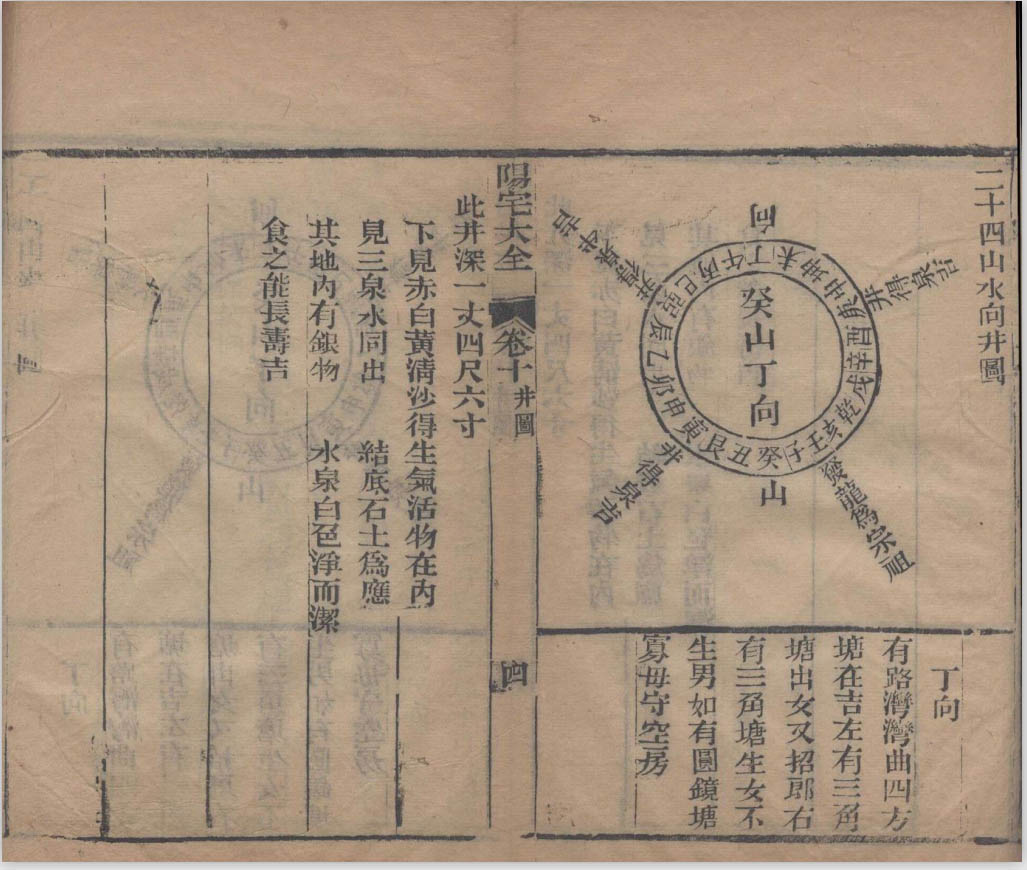 二十四山水向井圖
向
井得泉吉
癸山丁向
丁午丙巳巽辰乙卯甲寅艮丑癸子壬亥乾戌辛酉庚申坤未
井得泉吉
山
發龍爲宗祖
丁向
有路灣灣曲四方
塘在吉左有三角
塘出女又招郎右
有三角塘生女不
生男如有圓鏡塘
寡母守空房
陽宅大全
卷十
井圖
四
此井深一丈四尺六寸
下見赤白黃清沙得生氣活物在內
見三泉水同出 結底石土爲應
其地內有銀物 水泉白色淨而潔
食之能長壽吉